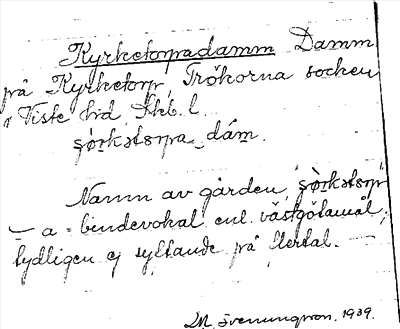 Kyrketorpadamm Damm
på Kyrketorp, Trökörna socken
i Viste hd, Skb. l.
dám.
Namn av gården
- a = bindevokal enl. västgötamål,
tydligen ej syftande på flertal. —
M. Svenungsson. 1939.